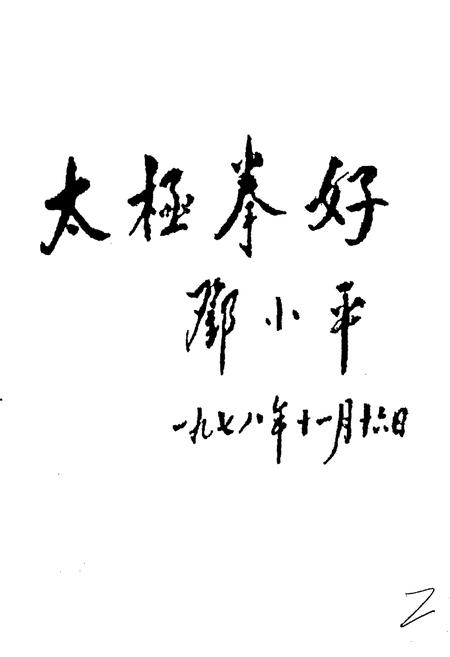 太極拳好
鄧小平
一九七八年十一月十六日
2